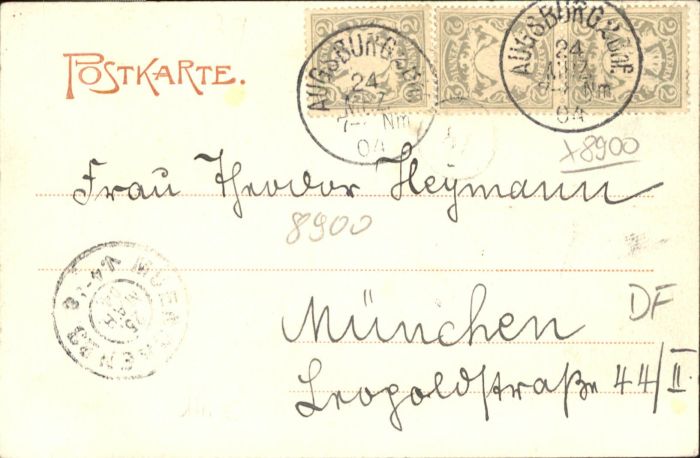 POSTKARTE.
AUGSBURG 2 Bhf.
24
7-8 Nm
04
AUGSBURG 2 Bhf.
24
Nm
04
+8900
Frau Theodor Heymann
8900
München
DF
Leopoldstraße 44/II.